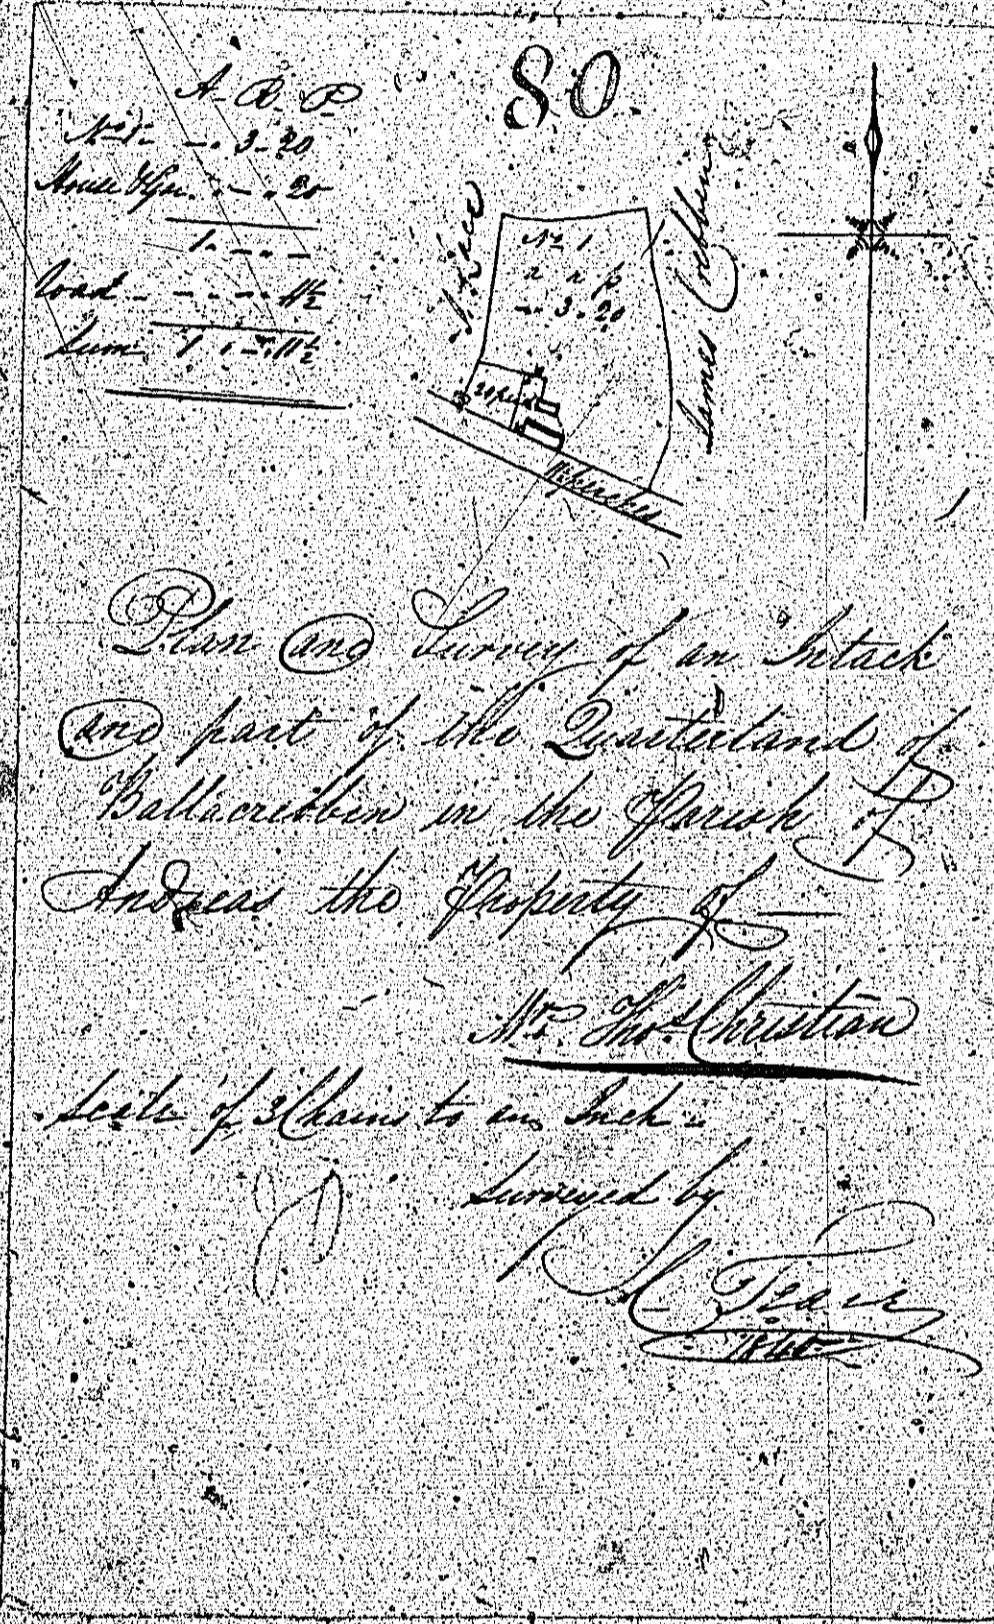 80
A. R. P.
No. 1. - . 3 - 20
House & Gn. - . - . 20
1 - . - . -
Road - - . - . 11½
Sum 1 . - . 11½
No. 1
a r p
- . 3 . 20
20 per
James Cribbin
11½ perches
Plan and Survey of an Intack
and part of the Quarterland of
Ballacribbin in the Parish of
Andreas the Property of
Mr. Thos. Christian
Scale of 3 Chains to an Inch
Surveyed by